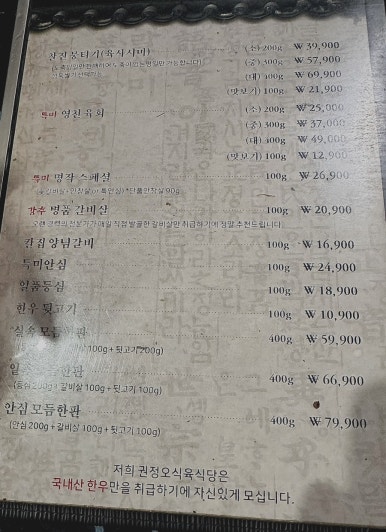 찬진뭉티기(육사시미) (소) 200g ₩ 39,900
(중) 300g ₩ 57,900
(대) 400g ₩ 69,900
(맛보기) 100g ₩ 21,900
특미 영천육회 (소) 200g ₩ 25,000
(중) 300g ₩ 37,000
(대) 400g ₩ 49,000
(맛보기) 100g ₩ 12,900
특미 명작스페셜 100g ₩ 26,900
강추 명품갈비살 100g ₩ 20,900
오랜 경력의 전문가가 매일 직접 발골한 갈비살만 취급하기에 정말 추천드립니다.
칸집양념갈비 100g ₩ 16,900
특미안심 100g ₩ 24,900
일품등심 100g ₩ 18,900
한우뒷고기 100g ₩ 10,900
실속모듬한판 400g ₩ 59,900
100g + 뒷고기 200g)
한판 400g ₩ 66,900
(등심 200g + 갈비살 100g + 뒷고기 100g)
안심모듬한판 400g ₩ 79,900
(안심 200g + 갈비살 100g + 뒷고기 100g)
저희 권정오식육식당은
국내산 한우만을 취급하기에 자신있게 모십니다.